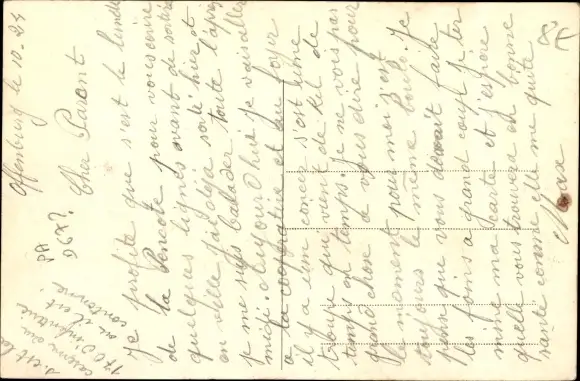 Offenburg le 10.24
Cher Parent
Je profite que s'est le lundi
de la Pencote pour vous écrire
quelques lignes avant de sortire
en ville j'ai deja sorté hier et
je me suis balader toute l'après
midi. Aujourd'hui je vais aller
a la cooperative et au foyer
il a un concer s'est une
troupe qui vient de tel de
temps en temps. Je ne vois pas
grand chose a vous dire pour
le moment pour moi s'est
toujours le même boulo. Je
pense que vous devait faire
les foins a grand coup. Je ter
mine ma carte et j'espère
quelle vous trouvera en bonne
santé comme elle me quitte
PA
9687
s'est la
caserne du
170 D'infanterie
ou il est
contonné